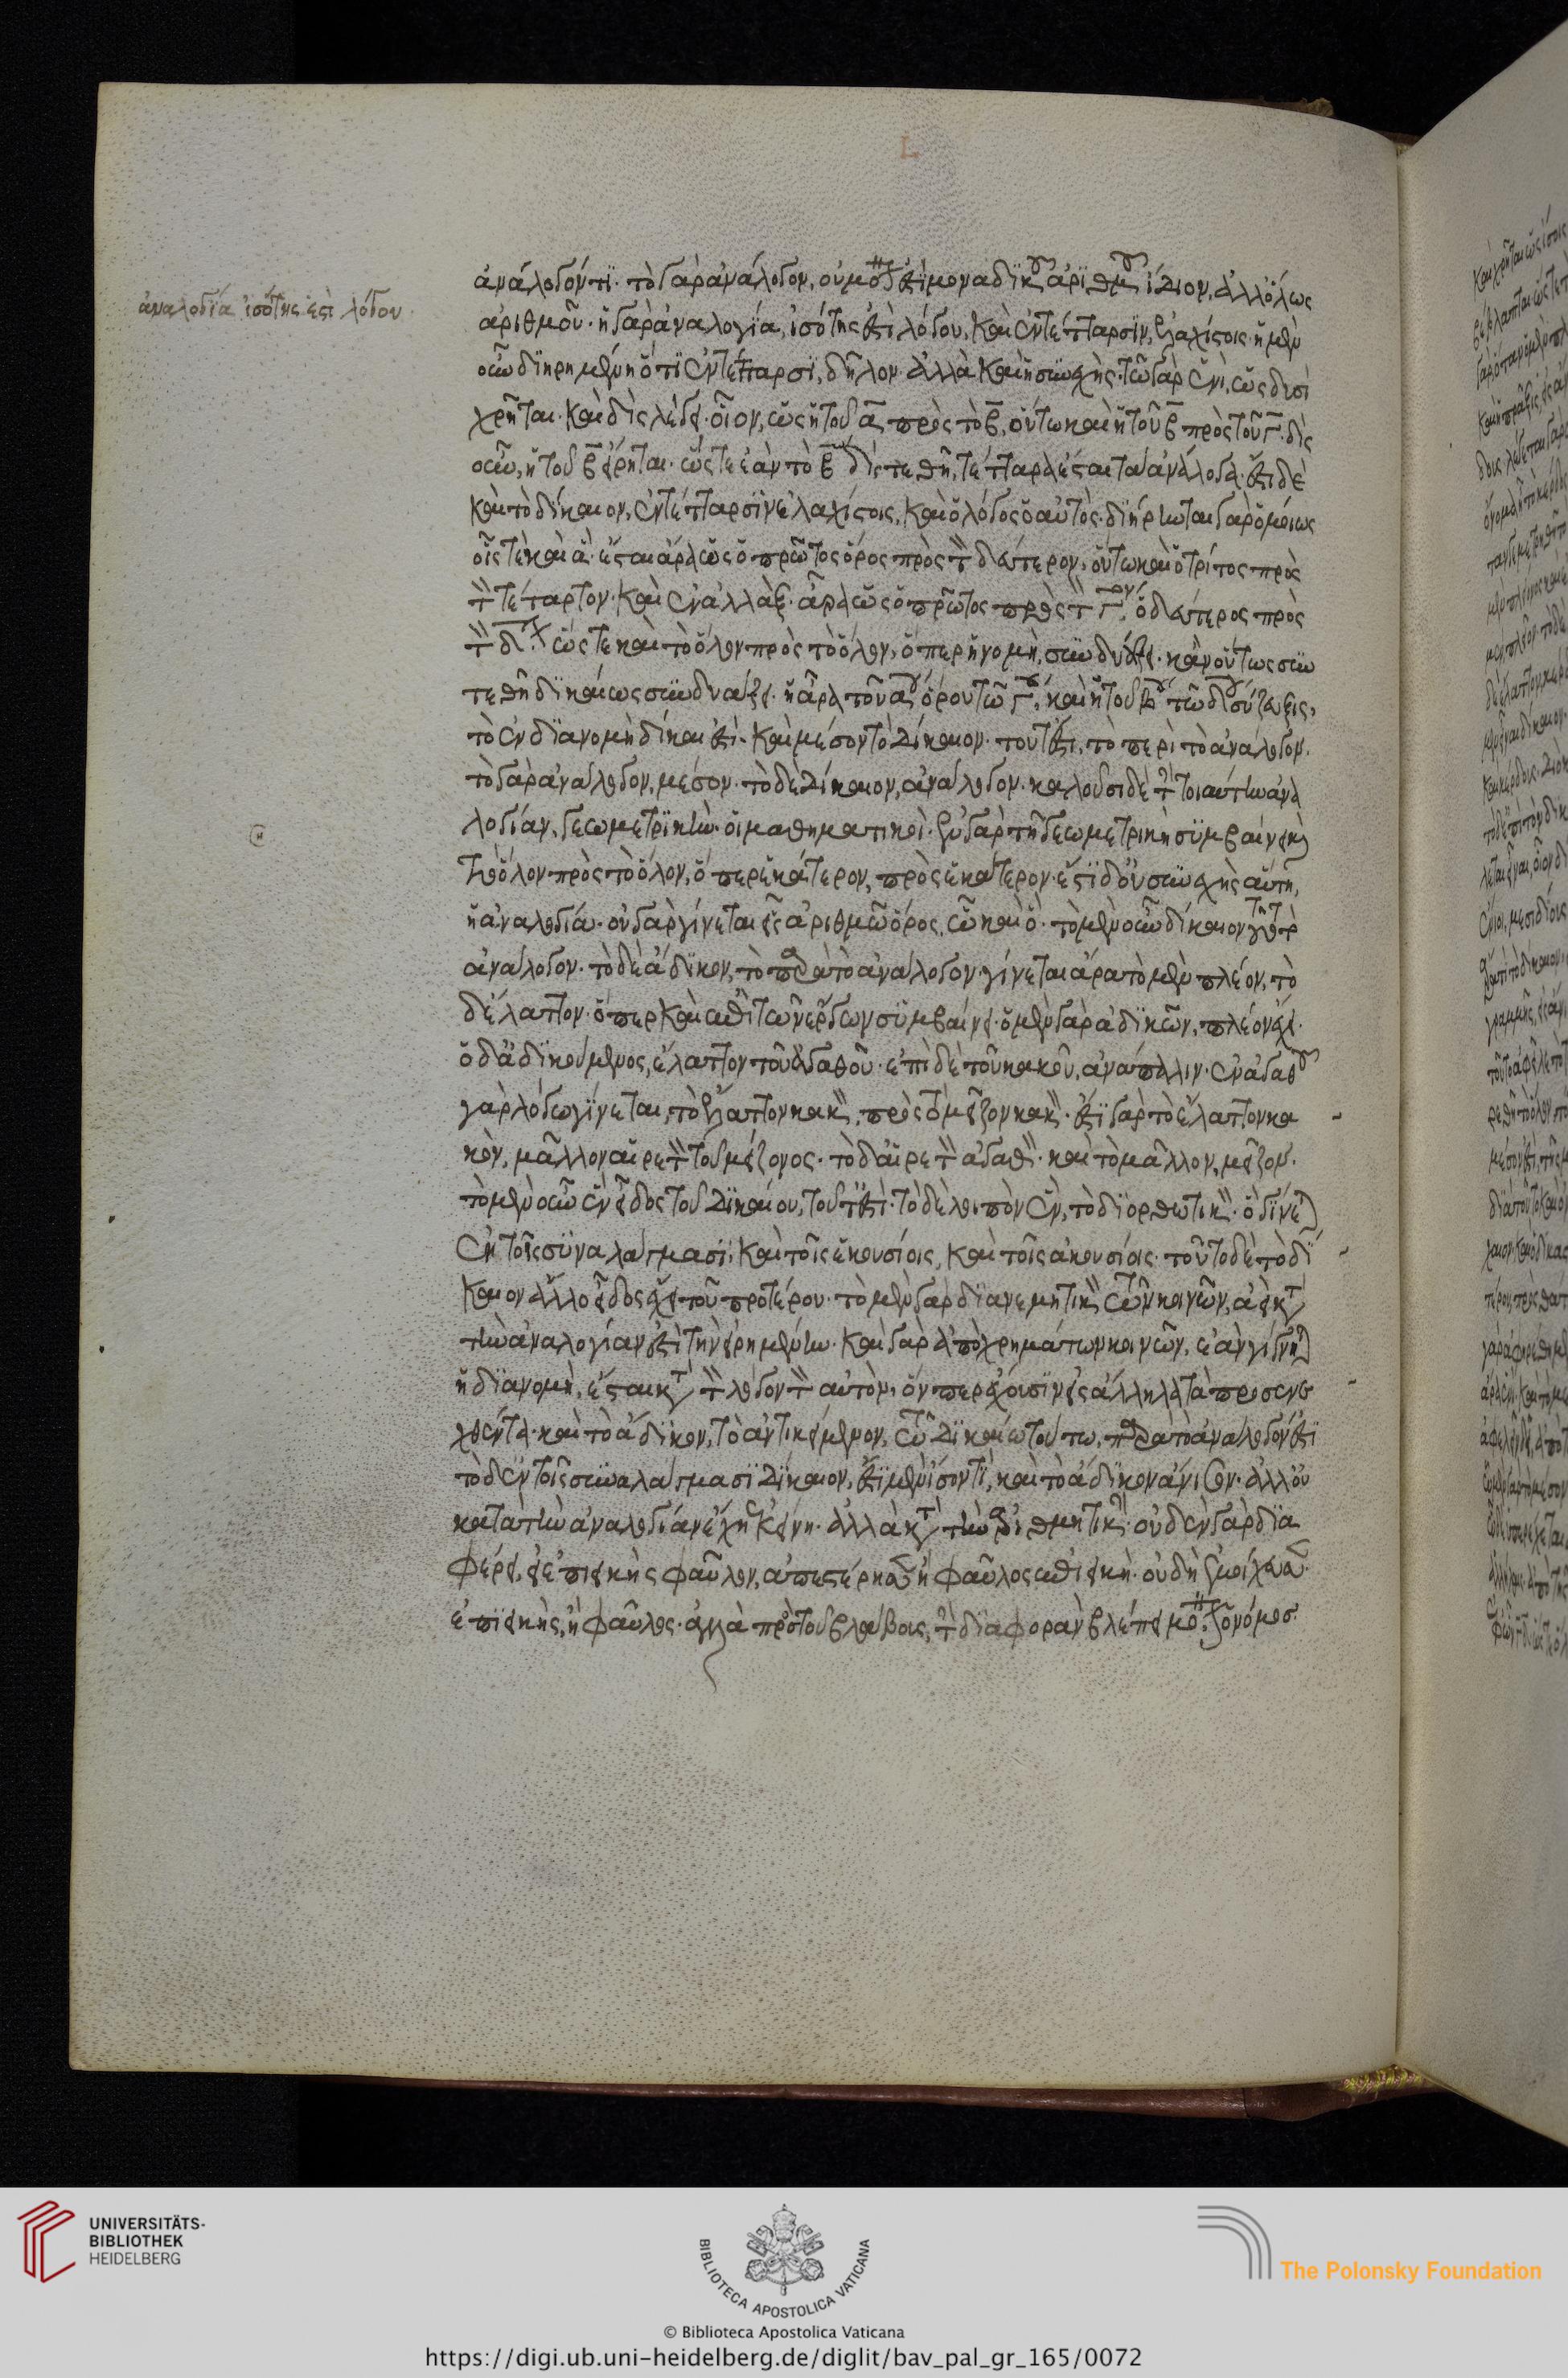 ἀναλογία ἰσότης ἐστὶ λόγου
ἀνάλογόν τι· τὸ γὰρ ἀνάλογον, οὐ μόνον ἐστὶ μοναδικοῦ ἀριθμοῦ ἴδιον, ἀλλ' ὅλως
ἀριθμοῦ· ἡ γὰρ ἀναλογία, ἰσότης ἐστὶ λόγου, καὶ ἐν τέτταρσιν ἐλαχίστοις· ἡ μὲν
οὖν διῃρημένη ὅτι ἐν τέτταρσι, δῆλον· ἀλλὰ καὶ ἡ συνεχής· τῷ γὰρ ἑνὶ, ὡς δυσὶ
χρῆται· καὶ δὶς λέγει· οἷον, ὡς ἡ τοῦ α πρὸς τὸ β, οὕτω καὶ ἡ τοῦ β πρὸς τοῦ γ· δὶς
οὖν, ἡ τοῦ β εἴρηται· ὥστε ἐὰν τὸ β δὶς τεθῇ, τέτταρα ἔσται τὰ ἀνάλογα· ἔστι δὲ
καὶ τὸ δίκαιον, ἐν τέτταρσιν ἐλαχίστοις, καὶ ὁ λόγος ὁ αὐτός· διῄρηται γὰρ ὁμοίως
οἷς τε καὶ ἅ· ἔσται ἄρα ὡς ὁ πρῶτος ὅρος πρὸς τὸν δεύτερον, οὕτω καὶ ὁ τρίτος πρὸς
τὸν τέταρτον· καὶ ἐναλλὰξ· ἄρα ὡς ὁ πρῶτος πρὸς τὸν γον, ὁ δεύτερος πρὸς
τὸν δον· ὥστε καὶ τὸ ὅλον πρὸς τὸ ὅλον, ὅπερ ἡ νομὴ, συνδυάζει· κἂν οὕτως συν
τεθῇ δικαίως συνδυάζει· ἡ ἄρα τοῦ αου ὅρου τῷ γ, καὶ ἡ τοῦ βου τῷ δ σύζευξις,
τὸ ἐν διανομῇ δίκαι ἐστὶ· καὶ μέσον τὸ δίκαιον· τουτέστι, τὸ περὶ τὸ ἀνάλογον.
τὸ γὰρ ἀνάλογον, μέσον· τὸ δὲ δίκαιον, ἀνάλογον· καλοῦσι δὲ τὴν τοιαύτην ἀνα
λογίαν, γεωμετρικὴν οἱ μαθηματικοί· ἐν γὰρ τῇ γεωμετρικῇ συμβαίνει καὶ
τὸ ὅλον πρὸς τὸ ὅλον, ὅπερ ἑκάτερον, πρὸς ἑκάτερον· ἔστι δ' οὐ συνεχὴς αὕτη,
ἡ ἀναλογία· οὐ γὰρ γίνεται εἷς ἀριθμῷ ὅρος, ᾧ καὶ ὅ· τὸ μὲν οὖν δίκαιον τοῦτο τὸ
ἀνάλογον· τὸ δὲ ἄδικον, τὸ παρὰ τὸ ἀνάλογον· γίνεται ἄρα τὸ μὲν πλέον, τὸ
δ' ἔλαττον· ὅπερ καὶ ἐπὶ τῶν ἔργων συμβαίνει· ὁ μὲν γὰρ ἀδικῶν, πλέον ἔχει·
ὁ δ' ἀδικούμενος, ἔλαττον τοῦ ἀγαθοῦ· ἐπὶ δὲ τοῦ κακοῦ, ἀνάπαλιν· ἐν ἀγαθοῦ
γὰρ λόγῳ γίνεται, τὸ ἔλαττον κακὸν, πρὸς τὸ μεῖζον κακόν· ἔστι γὰρ τὸ ἔλαττον κα
κὸν, μᾶλλον αἱρετὸν τοῦ μείζονος· τὸ δ' αἱρετὸν ἀγαθόν· καὶ τὸ μᾶλλον, μεῖζον·
τὸ μὲν οὖν ἓν εἶδος τοῦ δικαίου, τοῦτ' ἐστὶ· τὸ δὲ λοιπὸν ἓν, τὸ διορθωτικόν· ὃ γίνεται
ἐν τοῖς συναλλάγμασι, καὶ τοῖς ἑκουσίοις, καὶ τοῖς ἀκουσίοις· τοῦτο δὲ τὸ δί
καιον ἄλλο εἶδος ἔχει τοῦ προτέρου· τὸ μὲν γὰρ διανεμητικὸν τῶν κοινῶν, ἀεὶ κατὰ
τὴν ἀναλογίαν ἐστὶ τὴν εἰρημένην· καὶ γὰρ ἀπὸ χρημάτων κοινῶν, ἐὰν γίγνηται
ἡ διανομὴ, ἔσται κατὰ τὸν λόγον τὸν αὐτὸν, ὅνπερ ἔχουσιν εἰς ἄλληλα τὰ προσενε
χθέντα· καὶ τὸ ἄδικον, τὸ ἀντικείμενον, τῷ δικαίῳ τούτῳ, παρὰ τὸ ἀνάλογόν ἐστι
τὸ δ' ἐν τοῖς συναλλάγμασι δίκαιον, ἐστὶ μὲν ἴσον τι, καὶ τὸ ἄδικον ἄνισον· ἀλλ' οὐ
κατὰ τὴν ἀναλογίαν ἐκείνην· ἀλλὰ κατὰ τὴν ἀριθμητικήν· οὐδὲν γὰρ δια
φέρει, εἰ ἐπιεικὴς φαῦλον, ἀπεστέρησεν ἢ φαῦλος ἐπιεικῆ· οὐδ' εἰ ἐμοίχευσεν
ἐπιεικὴς, ἢ φαῦλος· ἀλλὰ πρὸς τοῦ βλάβους, τὴν διαφορὰν βλέπει μόνον ὁ νόμος·
UNIVERSITÄTS-
BIBLIOTHEK
HEIDELBERG
BIBLIOTECA APOSTOLICA VATICANA
© Biblioteca Apostolica Vaticana
The Polonsky Foundation
https://digi.ub.uni-heidelberg.de/diglit/bav_pal_gr_165/0072